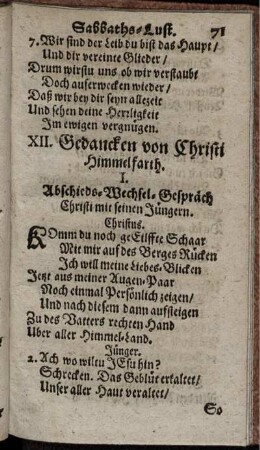 Sabbaths-Lust. 71
7. Wir sind der Leib du bist das Haupt/
Und dir vereinte Glieder/
Drum wirstu uns ob wir verstaubt
Doch auferwecken wieder/
Daß wir bey dir seyn allezeit
Und sehen deine Herrligkeit
Im ewigen vergnügen.
XII. Gedancken von Christi
Himmelfarth.
I.
Abschieds-Wechsel-Gespräch
Christi mit seinen Jüngern.
Christus.
KOmm du noch geEilffte Schaar
Mit mir auf des Berges Rücken
Ich will meine Liebes-Blicken
Jetz aus meiner Augen-Paar
Noch einmal Persönlich zeigen/
Und nach diesem dann aufsteigen
Zu des Vatters rechten Hand
Uber aller Himmel-Land.
Jünger.
2. Ach wo wiltu JEsu hin?
Schrecken. Das Geblüt erkaltet/
Unser aller Haut veraltet/
So